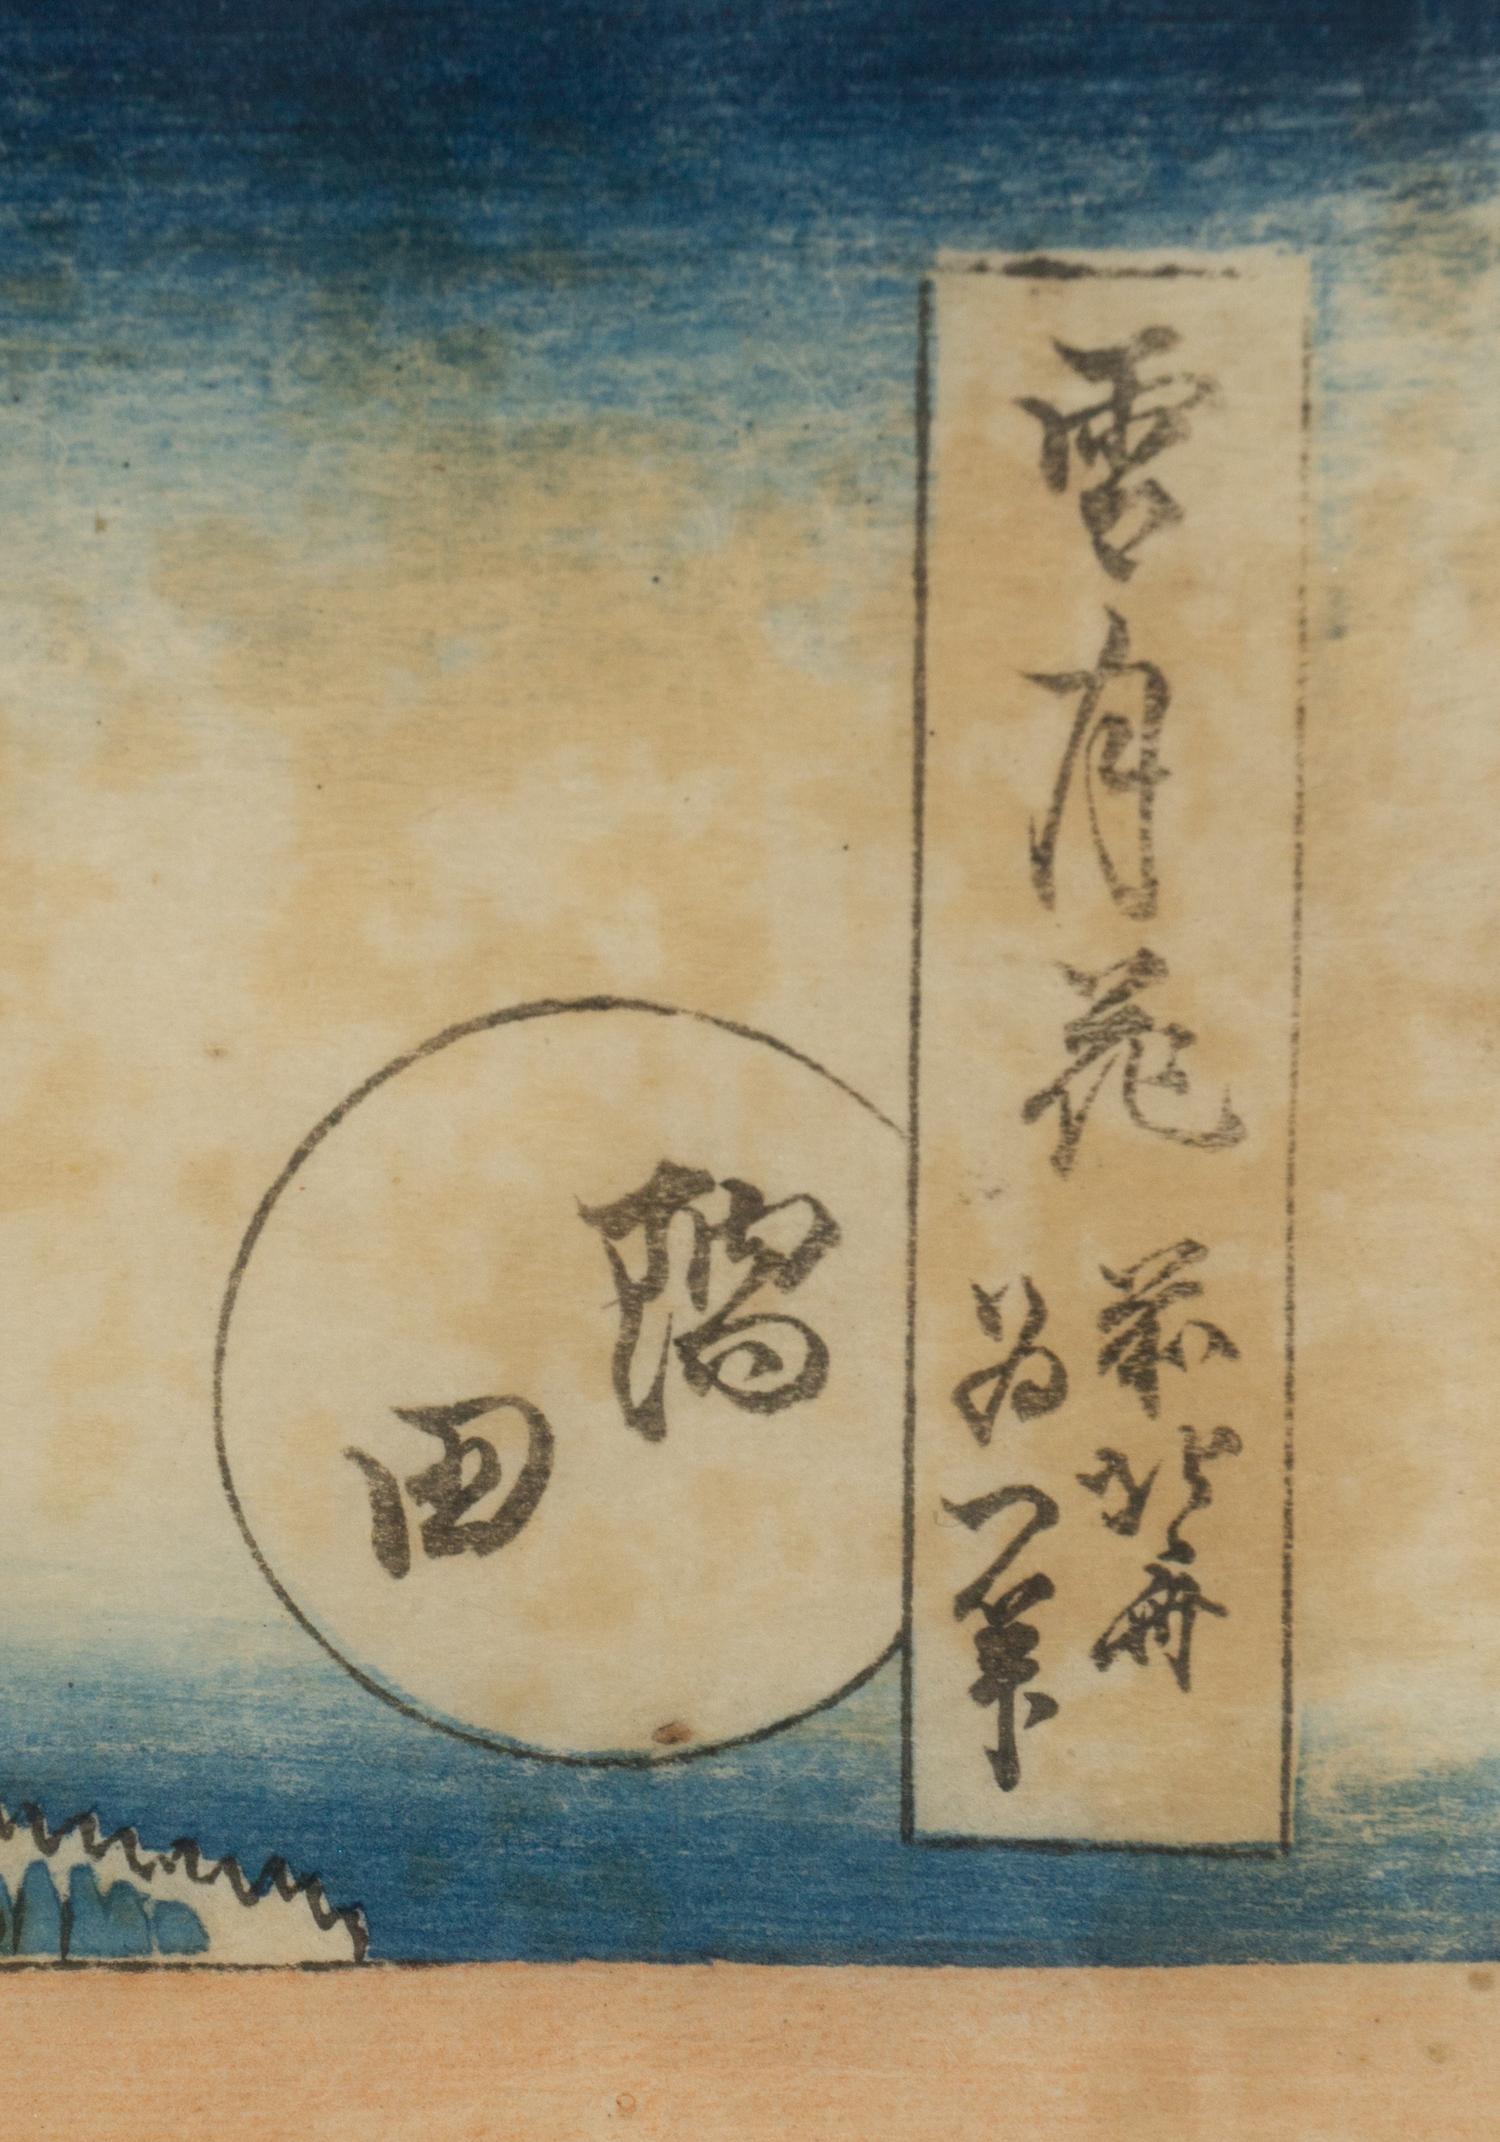 雪月花
前北斎
為一筆
隅田